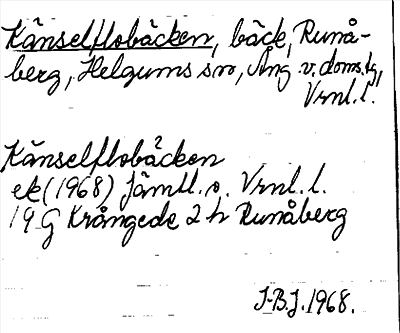 Känselflobäcken, bäck, Runå-
berg, Helgums sn, Ång v. doms.g,
Vrnl. l.
Känselflobäcken
ek (1968) Jämtl. o. Vrnl. l.
19 G Krångede 2 h Runåberg
J-B.J. 1968.